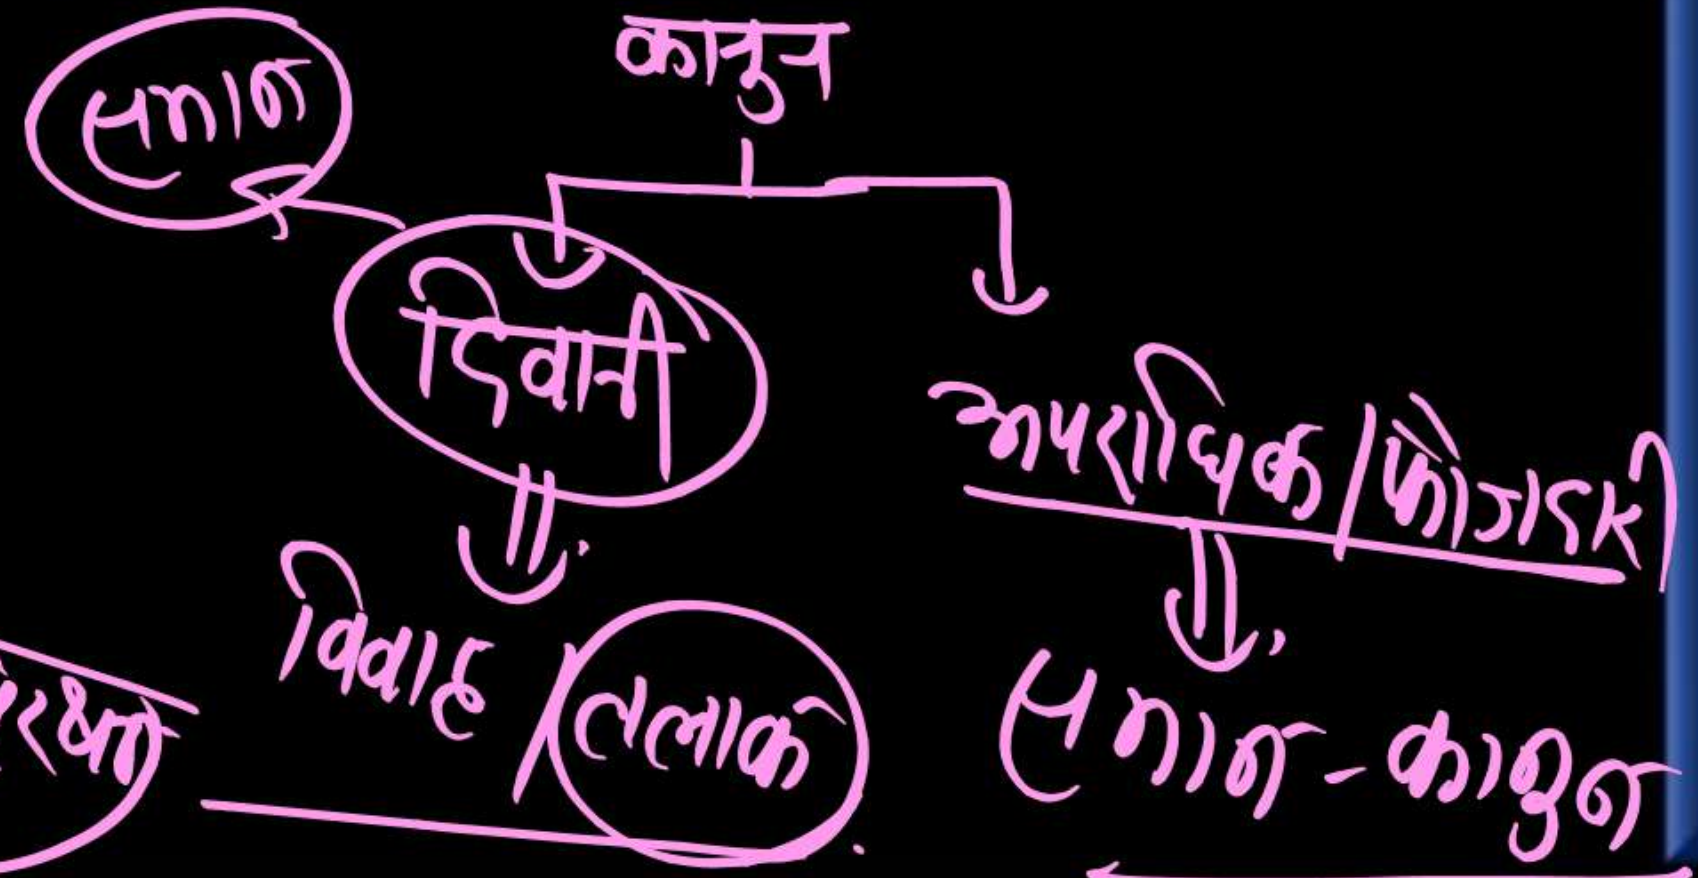 कानुन
समान
दिवानी
अपराधिक/फौजदारी
विवाह/तलाक
समान-कानुन